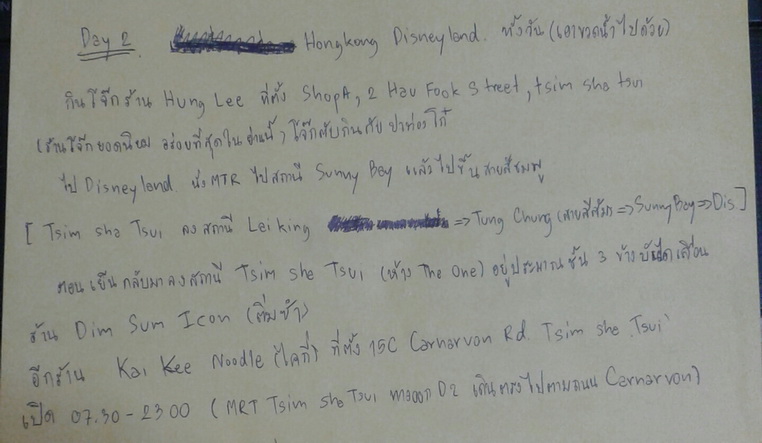 Day 2 Hongkong Disneyland. ทั้งวัน (เอาขวดน้ำไปด้วย)
กินโจ๊กร้าน Hung Lee ที่ตั้ง ShopA, 2 Hau Fook Street, tsim sha tsui
(ร้านโจ๊กยอดนิยม อร่อยที่สุดในย่านนี้) โจ๊กตับกินกับปาท่องโก๋
ไป Disneyland. นั่ง MTR ไปสถานี Sunny Bay แล้วไปขึ้นสายสีชมพู
[ Tsim sha Tsui ลงสถานี Lai king => Tung Chung (สายสีส้ม) => Sunny Bay => Dis ]
ตอนเย็นกลับมาลงสถานี Tsim She Tsui (ห้าง The One) อยู่ประมาณชั้น 3 ข้างบันไดเลื่อน
ร้าน Dim Sum Icon (ติ่มซำ)
อีกร้าน Kai Kee Noodle (ไคกี่) ที่ตั้ง 15C Carnarvon Rd. Tsim she Tsui
เปิด 07.30 - 23.00 (MRT Tsim She Tsui ทางออก D2 เดินตรงไปตามถนน Carnarvon)